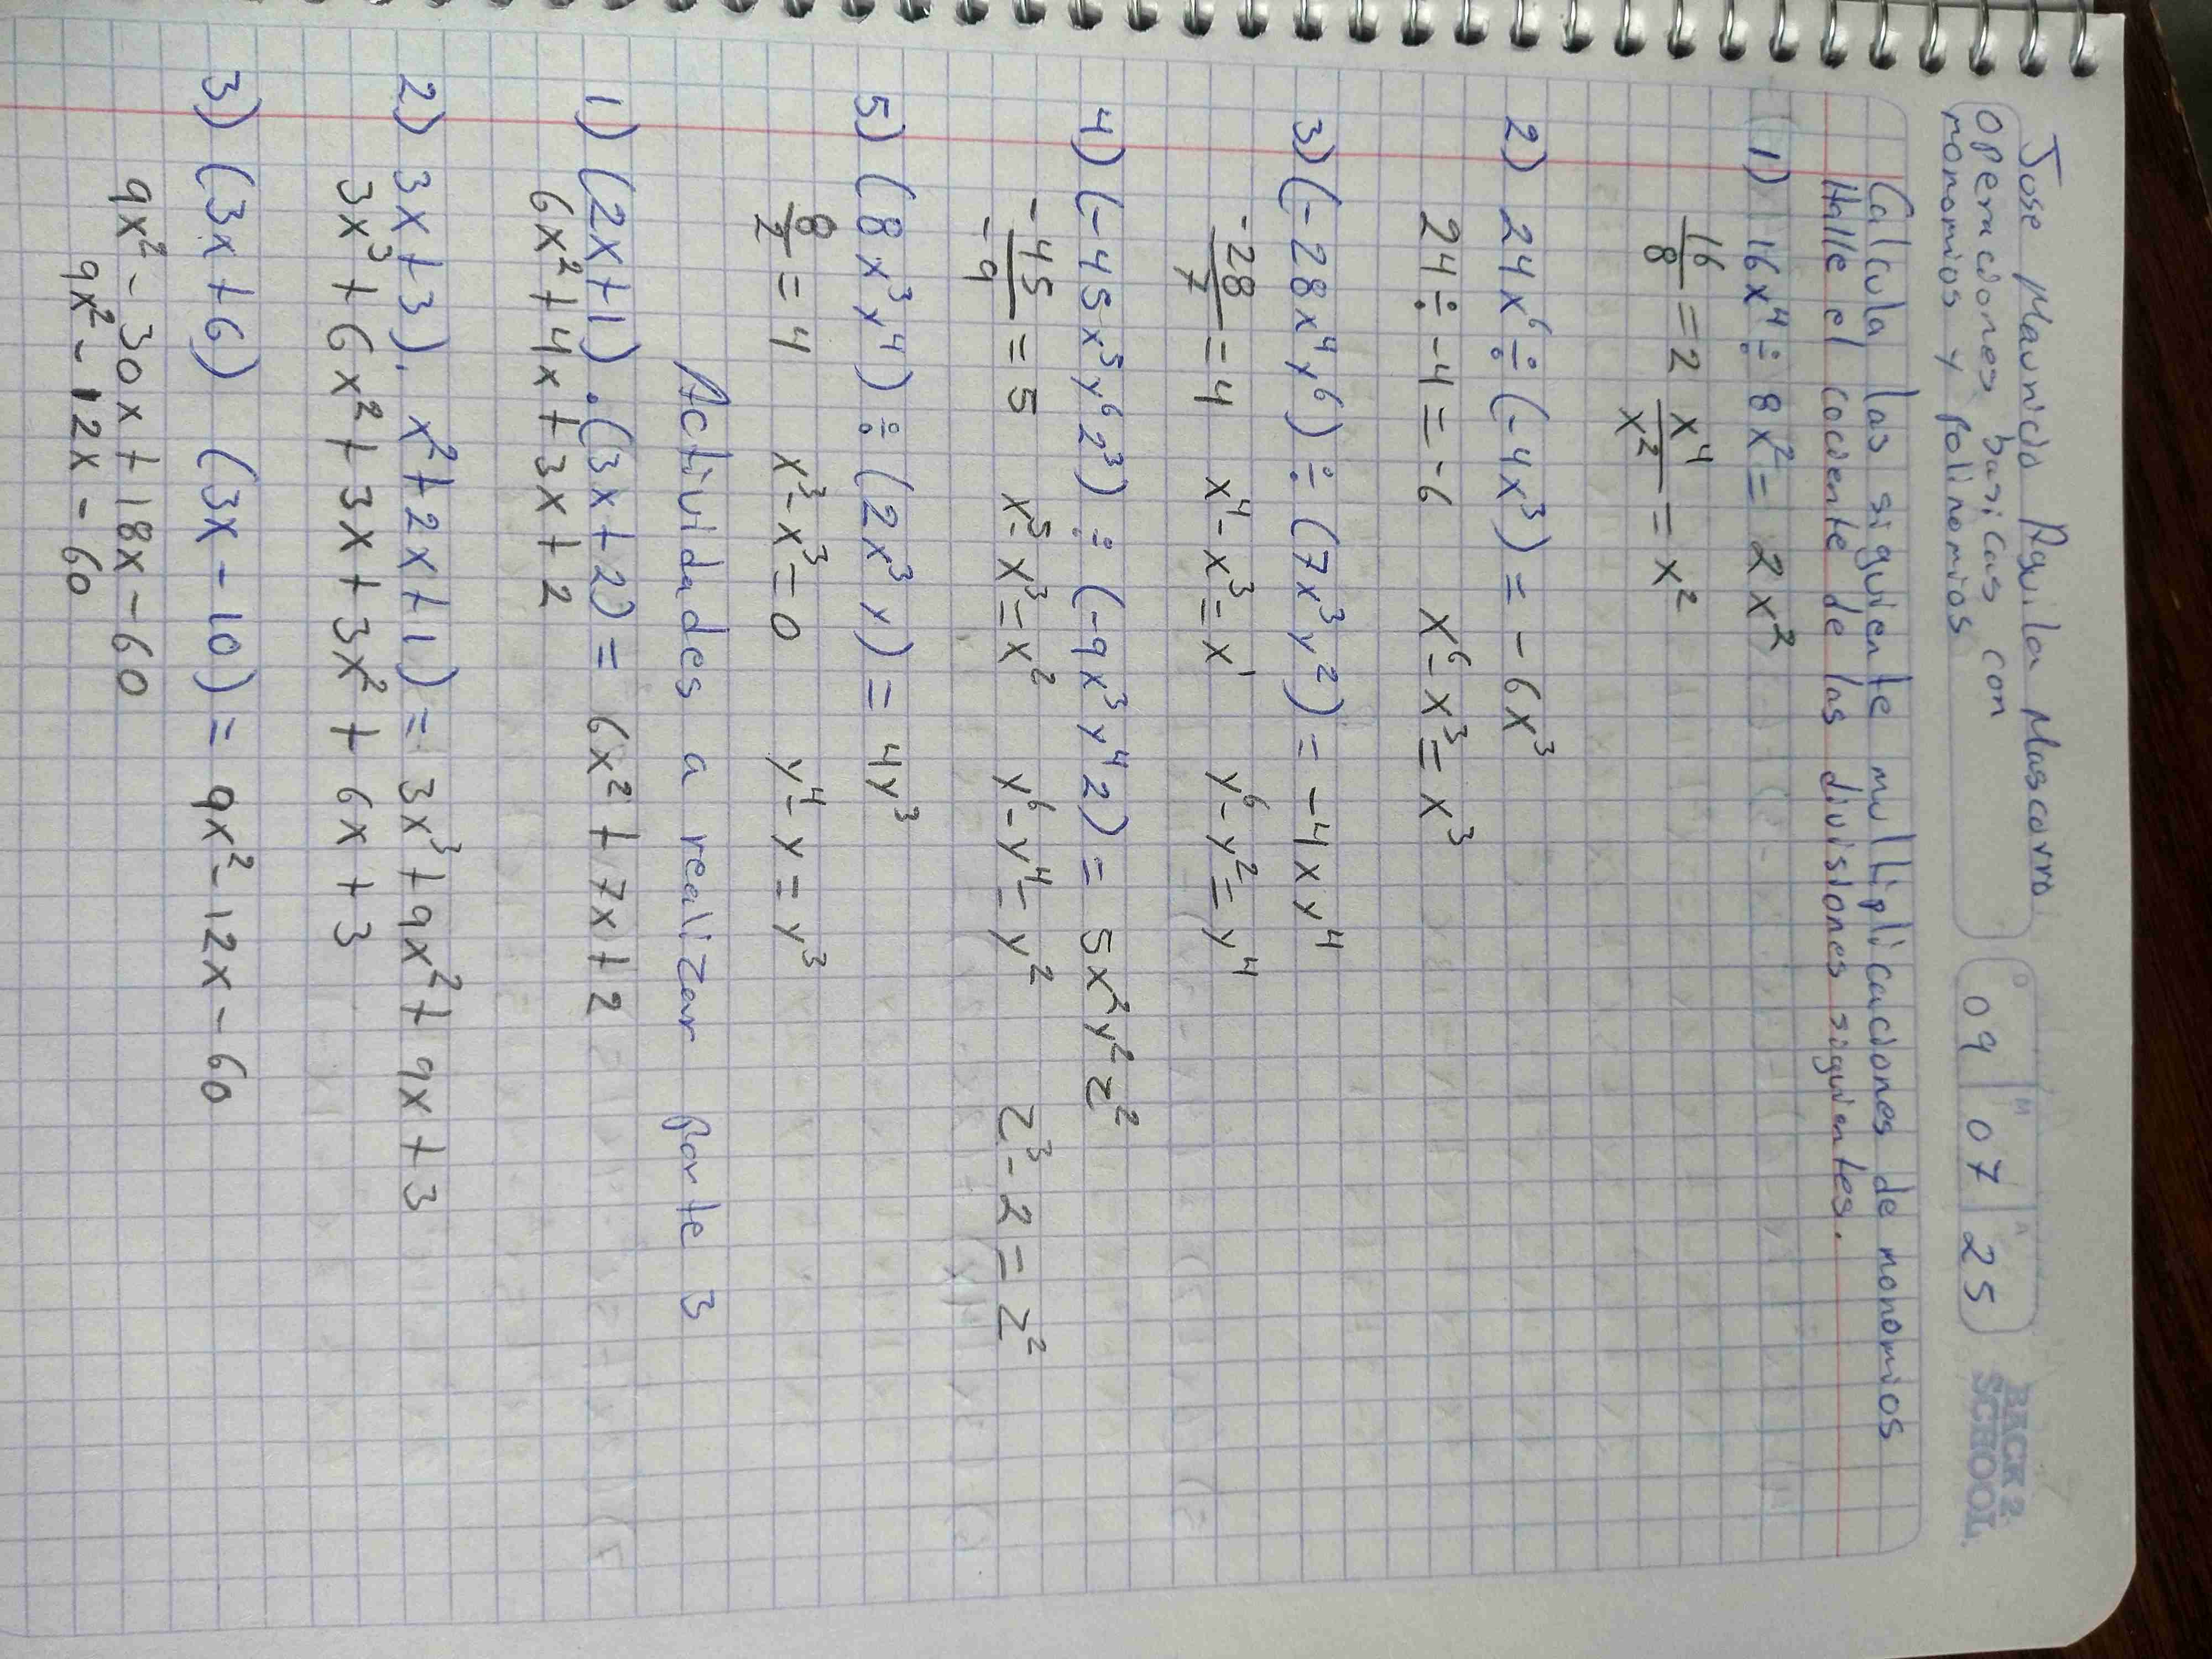 Jose Mauricio Aguilar Mascorro
Operaciones basicas con
monomios y polinomios
D M A
09 07 25
BACK 2
SCHOOL
Calcula las siguiente multiplicaciones de monomios
Halle el cociente de las divisiones siguientes.
1) 16x⁴ ÷ 8x² = 2x²
16/8 = 2 x⁴/x² = x²
2) 24x⁶ ÷ (-4x³) = -6x³
24 ÷ -4 = -6 x⁶-x³ = x³
3) (-28x⁴y⁶) ÷ (7x³y²) = -4xy⁴
-28/7 = 4 x⁴-x³ = x¹ y⁶-y² = y⁴
4) (-45x⁵y⁶z³) ÷ (-9x³y⁴z) = 5x²y²z²
-45/-9 = 5 x⁵-x³ = x² y⁶-y⁴ = y² z³-z = z²
5) (8x³y⁴) ÷ (2x³y) = 4y³
8/2 = 4 x³-x³ = 0 y⁴-y = y³
Actividades a realizar parte 3
1) (2x+1).(3x+2) = 6x² + 7x + 2
6x² + 4x + 3x + 2
2) 3x+3). x²+2x+1) = 3x³ + 9x² + 9x + 3
3x³ + 6x² + 3x + 3x² + 6x + 3
3) (3x+6) (3x-10) = 9x² - 12x - 60
9x² - 30x + 18x - 60
9x² - 12x - 60